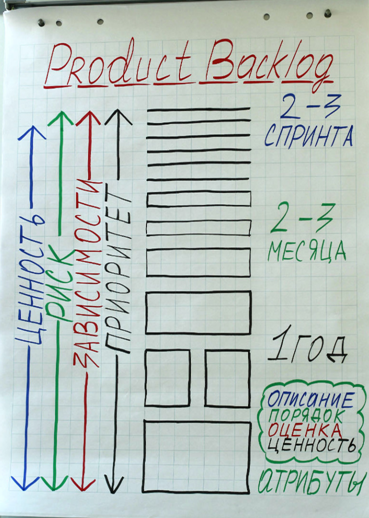 Product Backlog
ЦЕННОСТЬ
РИСК
ЗАВИСИМОСТИ
ПРИОРИТЕТ
2-3
СПРИНТА
2-3
МЕСЯЦА
1 ГОД
ОПИСАНИЕ
ПОРЯДОК
ОЦЕНКА
ЦЕННОСТЬ
АТРИБУТЫ